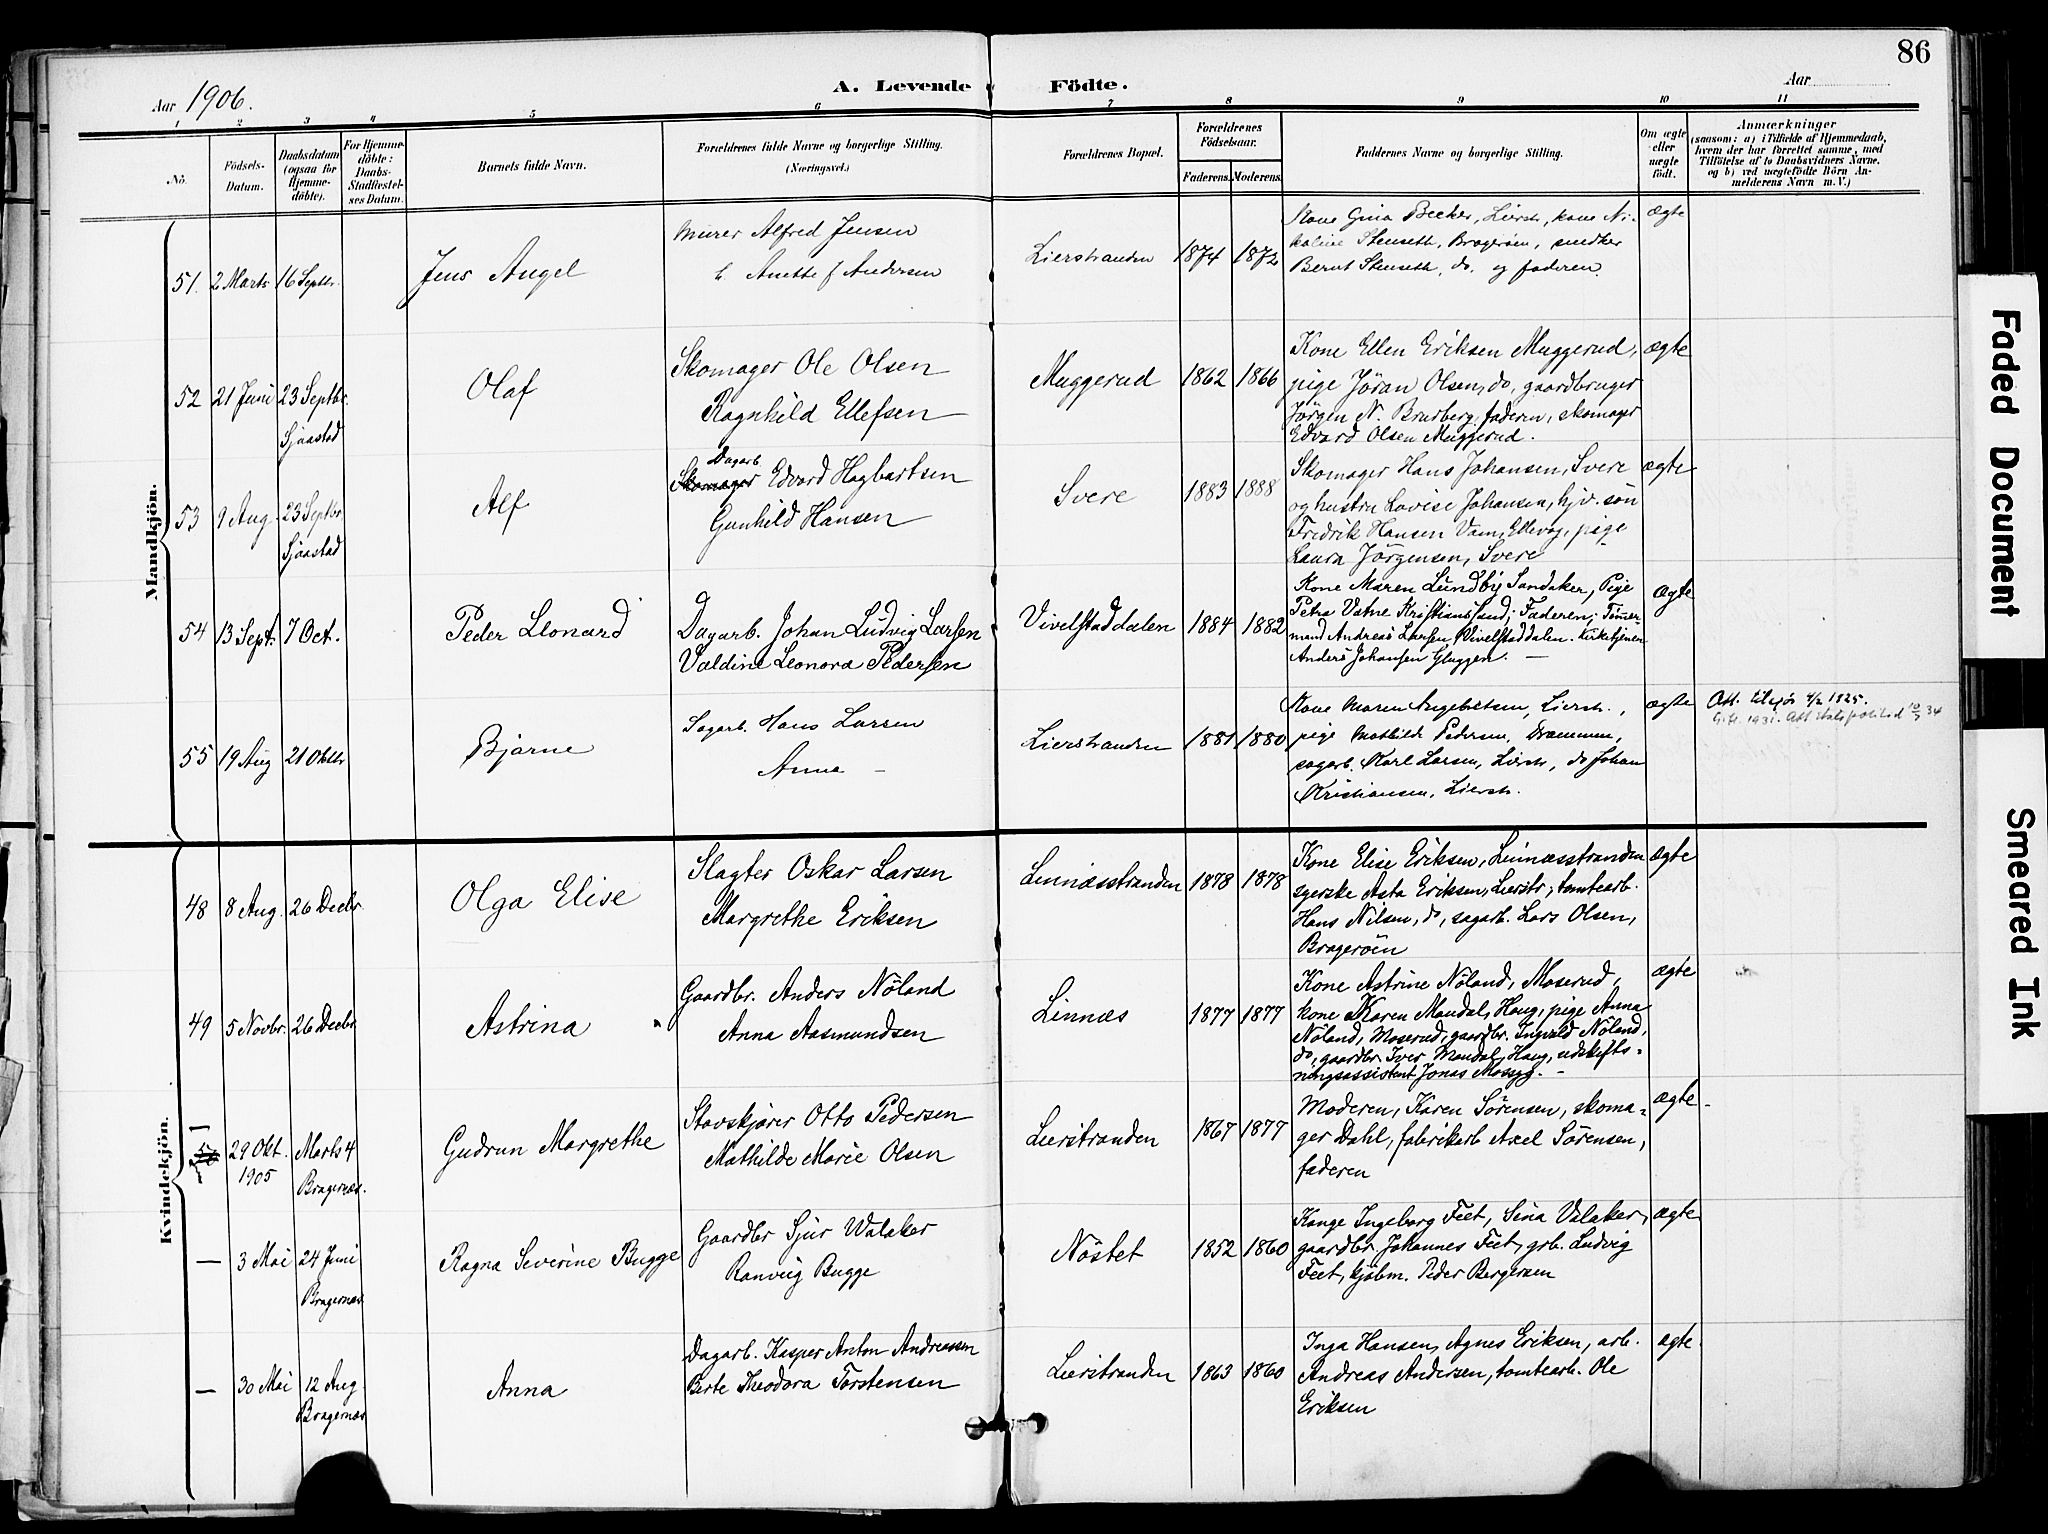 86
A. Levende Födte.
Aar 1906.
Aar
1 2 3 4 5 6 7 8 9 10 11
Nö.
Födsels-Datum.
Daabsdatum (ogsaa for Hjemmedöbte).
For Hjemmedöbte: Daabs-Stadfæstelses Datum.
Barnets fulde Navn.
Forældrenes fulde Navne og borgerlige Stilling. (Næringsvei.)
Forældrenes Bopæl.
Forældrenes Födselsaar.
Faderens. Moderens.
Faddernes Navne og borgerlige Stilling.
Om ægte eller uægte födt.
Anmærkninger
(saasom: a) i Tilfælde af Hjemmedaab, hvem der har forrettet samme, med Tilföielse af to Daabsvidners Navne, og b) ved uægtefödte Börn Anmelderens Navn m. V.)
Mandkjön.
51. 2 Marts 16 Septbr. Jens Angel
Murer Alfred Jensen
h. Anette f Andersen
Lierstranden 1874 1872
Kone Gina Becker, Lierstr, kone Ni-
koline Stenseth, Bragerøen, snedker
Bernt Stenseth, do. og faderen.
ægte
52 21 Juni 23 Septbr. Sjaastad Olaf
Skomager Ole Olsen
Ragnhild Ellefsen
Muggerud 1862 1866
Kone Ellen Eriksen Muggerud,
pige Jöran Olsen, do, gaardbruger
Jörgen N. Braaberg, faderen, skomager
Edvard Olsen Muggerud.
ægte
53 9 Aug. 23 Septbr Sjaastad Alf
Dagarb
Skomager Edvard Hagbartsen
Gunhild Hansen
Svere 1883 1888
Skomager Hans Johansen, Svere
og hustru Lovise Johansen, hjv. søn
Fredrik Hansen Vam, Ellevog, pige
Laura Jörgensen, Svere
ægte
54 13 Sept. 7 Oct. Peder Leonard
Dagarb. Johan Ludvig Larsen
Valdine Leonora Pedersen
Vivelstaddalen 1884 1882
Kone Maren Lundby Sandaker, Pige
Petra Vatne Kristianssand; Faderen; Tömmer-
mand Andreas Larsen, Vivelstaddalen. Kirketjener
Anders Johansen Gluggen. —
ægte
55 19 Aug 21 Oktbr Bjarne
Sagarb. Hans Larsen
Anna —
Lierstranden 1881 1880
Kone Maren Ingebretsen, Lierstr.,
pige Mathilde Pedersen, Drammen,
sagarb. Karl Larsen, Lierstr, do Johan
Kristiansen, Lierstr.
ægte
Att. til sjøs 4/2 1925.
Gift 1931. Att statspoliti d 10/7 34
Kvindekjön.
48 8 Aug. 26 Decbr Olga Elise
Slagter Oskar Larsen
Margrethe Eriksen
Linnæsstranden 1878 1878
Kone Elise Eriksen, Linnæsstranden
sgerske Asta Eriksen, Lierstr; tomtearb.
Hans Nilsen, do, sagarb. Lars Olsen,
Bragerøen
ægte
49 5 Novbr. 26 Decbr Astrina
Gaardbr. Anders Nöland
Anna Aasmundsen
Linnæs 1877 1877
Kone Astrine Nöland, Moserud,
kone Karen Mandal, Haug, pige Anna
Nöland, Moserud, gaardbr. Ingvald Nöland,
do, gaardbr. Iver Mandal, Haug, udskift-
ningsassistent Jonas Mossyg. —
ægte
— 29 Okt. 1905 Marts 4 Bragernæs. Gudrun Margrethe
Stavskjører Otto Pedersen
Mathilde Marie Olsen
Lierstranden 1867 1877
Moderen, Karen Sørensen, skoma-
ger Dahl, fabrikarb Axel Sørensen,
faderen
ægte
— 3 Mai 24 Juni Bragernæs Ragna Severine Bugge
Gaardbr Sjur Walaker
Ranveig Bugge
Nöstet 1852 1860
Kange Ingeborg Feet, Sina Valaker,
gaardbr. Johannes Feet, grb. Ludvig
Feet, kjøbm. Peder Bergersen
ægte
— 30 Mai 12 Aug. Bragernæs Anna
Dagarb. Kasper Anton Andreassen
Berte Theodora Torstensen
Lierstranden 1863 1860
Inga Hansen, Agnes Eriksen, arb.
Andreas Andersen, tomtearb. Ole
Eriksen
ægte.
Faded Document
Smeared Ink